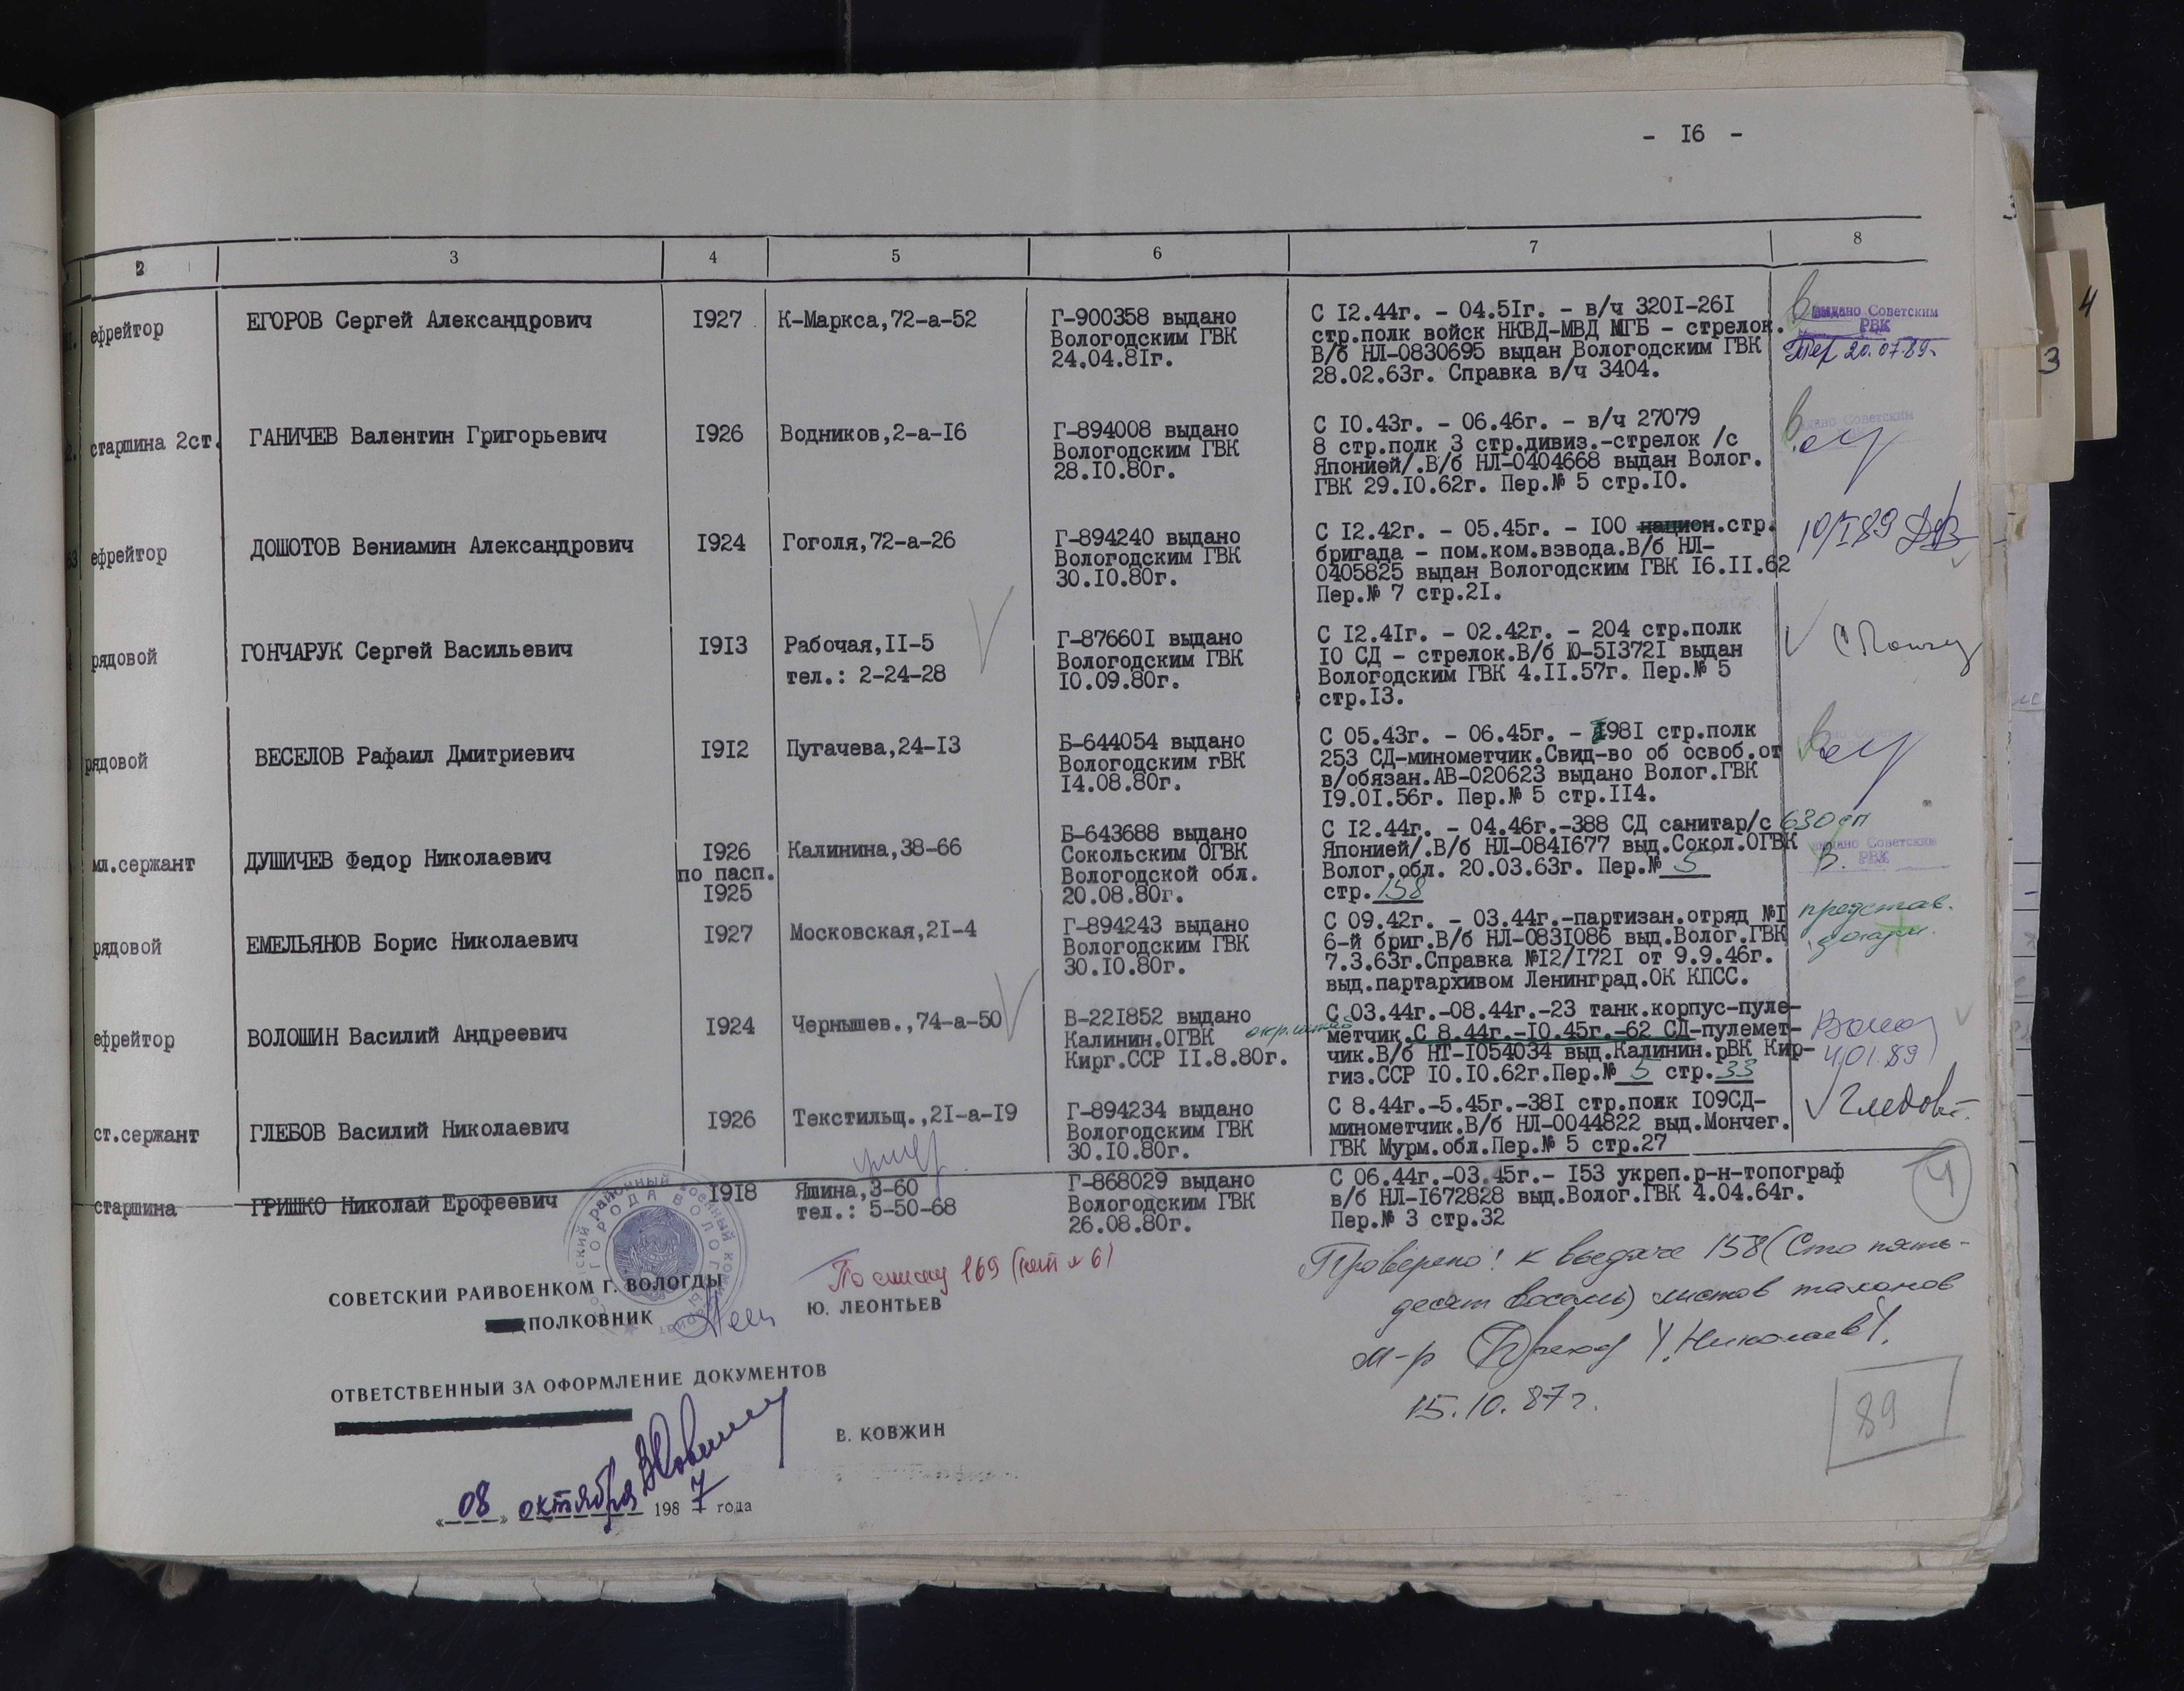 - I6 -
2 3 4 5 6 7 8
ефрейтор
ЕГОРОВ Сергей Александрович
I927
К-Маркса,72-а-52
Г-900358 выдано
Вологодским ГВК
24.04.8Iг.
С I2.44г. - 04.5Iг. - в/ч 320I-26I
стр.полк войск НКВД-МВД МГБ - стрелок.
В/б НЛ-0830695 выдан Вологодским ГВК
28.02.63г. Справка в/ч 3404.
выдано Советским
РВК
20.07.89г.
старшина 2ст.
ГАНИЧЕВ Валентин Григорьевич
I926
Водников,2-а-I6
Г-894008 выдано
Вологодским ГВК
28.I0.80г.
С I0.43г. - 06.46г. - в/ч 27079
8 стр.полк 3 стр.дивиз.-стрелок /с
Японией/.В/б НЛ-0404668 выдан Волог.
ГВК 29.I0.62г. Пер.№ 5 стр.I0.
Советским
ефрейтор
ДОШОТОВ Вениамин Александрович
I924
Гоголя,72-а-26
Г-894240 выдано
Вологодским ГВК
30.I0.80г.
С I2.42г. - 05.45г. - I00 национ.стр.
бригада - пом.ком.взвода.В/б НЛ-
0405825 выдан Вологодским ГВК I6.II.62
Пер.№ 7 стр.2I.
10/I89
рядовой
ГОНЧАРУК Сергей Васильевич
I9I3
Рабочая,II-5
тел.: 2-24-28
Г-87660I выдано
Вологодским ГВК
I0.09.80г.
С I2.4Iг. - 02.42г. - 204 стр.полк
I0 СД - стрелок.В/б Ю-5I372I выдан
Вологодским ГВК 4.II.57г. Пер.№ 5
стр.I3.
рядовой
ВЕСЕЛОВ Рафаил Дмитриевич
I9I2
Пугачева,24-I3
Б-644054 выдано
Вологодским гВК
I4.08.80г.
С 05.43г. - 06.45г. - I98I стр.полк
253 СД-минометчик.Свид-во об освоб.от
в/обязан.АВ-020623 выдано Волог.ГВК
I9.0I.56г. Пер.№ 5 стр.II4.
мл.сержант
ДУШИЧЕВ Федор Николаевич
I926
по пасп.
I925
Калинина,38-66
Б-643688 выдано
Сокольским ОГВК
Вологодской обл.
20.08.80г.
С I2.44г. - 04.46г.-388 СД санитар/с 630 сп
Японией/.В/б НЛ-084I677 выд.Сокол.ОГВК
Волог.обл. 20.03.63г. Пер.№ 5
стр. 158
выдано Советским
РВК
рядовой
ЕМЕЛЬЯНОВ Борис Николаевич
I927
Московская,2I-4
Г-894243 выдано
Вологодским ГВК
30.I0.80г.
С 09.42г. - 03.44г.-партизан.отряд №I
6-й бриг.В/б НЛ-083I086 выд.Волог.ГВК
7.3.63г.Справка №I2/I72I от 9.9.46г.
выд.партархивом Ленинград.ОК КПСС.
представ.
ефрейтор
ВОЛОШИН Василий Андреевич
I924
Чернышев.,74-а-50
В-22I852 выдано
Калинин.ОГВК
Кирг.ССР II.8.80г.
С 03.44г.-08.44г.-23 танк.корпус-пуле-
метчик.С 8.44г.-I0.45г.-62 СД-пулемет-
чик.В/б НТ-I054034 выд.Калинин.рВК Кир-
гиз.ССР I0.I0.62г.Пер.№ 5 стр. 33
4.01.89
ст.сержант
ГЛЕБОВ Василий Николаевич
I926
Текстильщ.,2I-а-I9
Г-894234 выдано
Вологодским ГВК
30.I0.80г.
С 8.44г.-5.45г.-38I стр.полк I09СД-
минометчик.В/б НЛ-0044822 выд.Мончег.
ГВК Мурм.обл.Пер.№ 5 стр.27
старшина
ГРИШКО Николай Ерофеевич
I9I8
Яшина,3-60
тел.: 5-50-68
Г-868029 выдано
Вологодским ГВК
26.08.80г.
С 06.44г.-03.45г.- I53 укреп.р-н-топограф
в/б НЛ-I672828 выд.Волог.ГВК 4.04.64г.
Пер.№ 3 стр.32
4
По списку 169
СОВЕТСКИЙ РАЙВОЕНКОМ Г. ВОЛОГДЫ
ПОЛКОВНИК
Ю. ЛЕОНТЬЕВ
Проверено! к выдаче 158 (Сто пять-
десят восемь) листов талонов
м-р Николаев
15.10.87г.
89
ОТВЕТСТВЕННЫЙ ЗА ОФОРМЛЕНИЕ ДОКУМЕНТОВ
В. КОВЖИН
«08» октября 1987 года
3
4
3